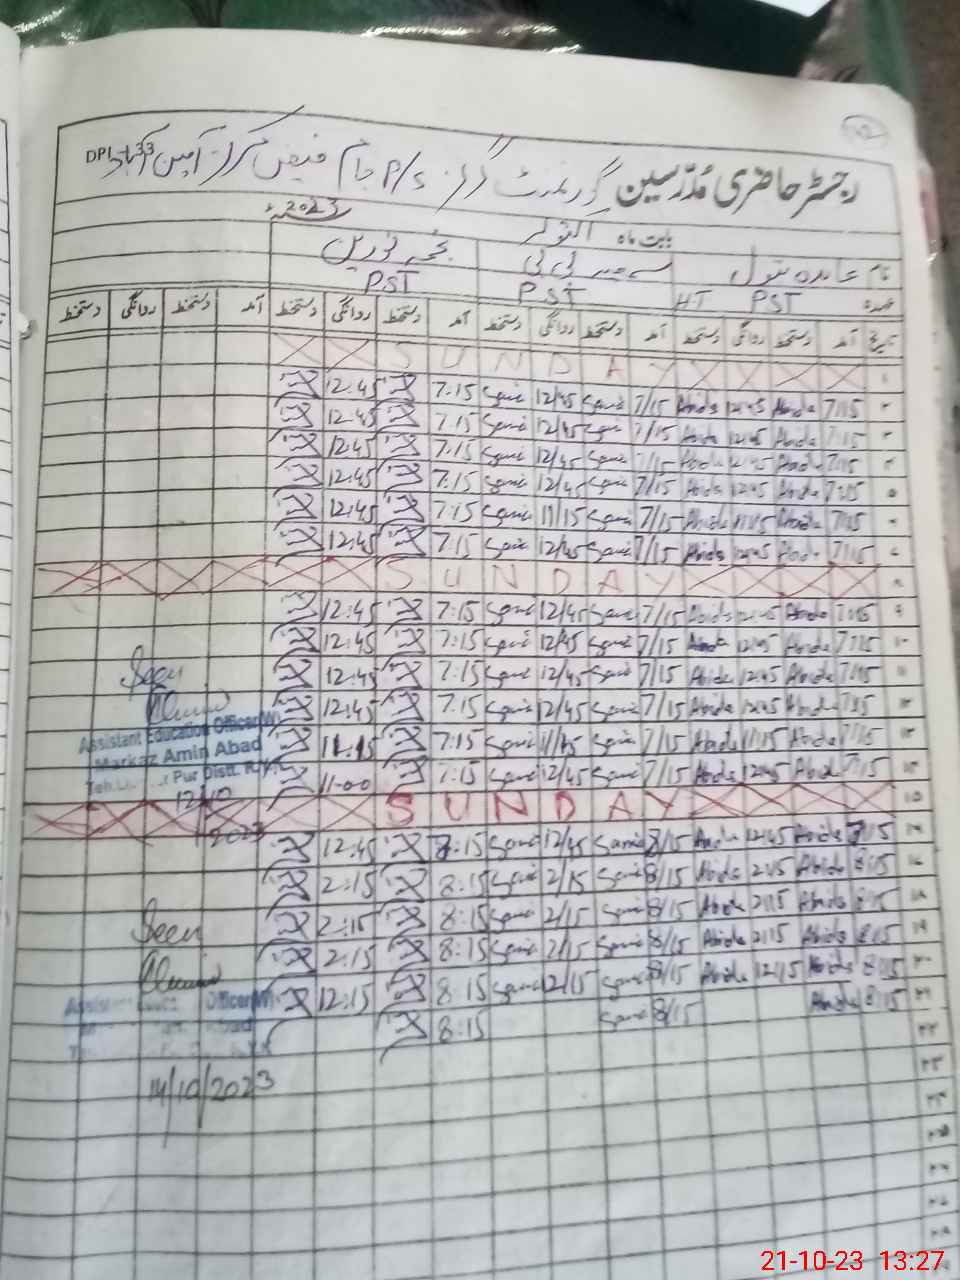 DPI-133
رجسٹر حاضری مُدرّسین گورنمنٹ گرلز P/S جام فیض مرکز امین آباد
بابت ماہ اکتوبر 2023ء
نام عابدہ بتول
نجمہ نورین
عہدہ PST HT PST PST
تاریخ آمد دستخط روانگی دستخط آمد دستخط روانگی دستخط آمد دستخط روانگی دستخط آمد دستخط روانگی دستخط
۱ SUNDAY
۲ 7/15 Abida 12:45 Abida 7/15 Sami 12/45 Sami 7:15 12:45
۳ 7:15 Abida 12:45 Abida 7/15 Sami 12/45 Sami 7:15 12:45
۴ 7:15 Abida 12:45 Abida 7/15 Sami 12/45 Sami 7:15 12:45
۵ 7:15 Abida 12:45 Abida 7/15 Sami 12/45 Sami 7:15 12:45
۶ 7:15 Abida 11:15 Abida 7/15 Sami 11/15 Sami 7:15 12:45
۷ 7/15 Abida 12:45 Abida 7/15 Sami 12/45 Sami 7:15 12:45
۸ SUNDAY
۹ 7:15 Abida 12:45 Abida 7/15 Sami 12/45 Sami 7:15 12:45
۱۰ 7:15 Abida 12:45 Abida 7/15 Sami 12/45 Sami 7:15 12:45
۱۱ 7:15 Abida 12:45 Abida 7/15 Sami 12/45 Sami 7:15 12:45
Seen
۱۲ 7:15 Abida 12:45 Abida 7/15 Sami 12/45 Sami 7:15 12:45
۱۳ 7/15 Abida 11:15 Abida 7/15 Sami Sami 7:15 11:15
Assistant Education Officer(W)
Markaz Amin Abad
Pur Distt. R.Y.K
۱۴ 7:15 Abida 12:45 Abida 7/15 Sami 12/45 Sami 7:15 11-00
12/10
2023
۱۵ SUNDAY
۱۶ 8/15 Abida 12:45 Abida 8/15 Sami 12/45 Sami 8:15 12:45
۱۷ 8:15 Abida 2:15 Abida 8/15 Sami 2/15 Sami 8:15 2:15
۱۸ 8:15 Abida 2:15 Abida 8/15 Sami 2/15 Sami 8:15 2:15
Seen
۱۹ 8:15 Abida 2:15 Abida 8/15 Sami 2/15 Sami 8:15 2:15
۲۰ 8:15 Abida 12:15 Abida 8/15 Sami 12/15 Sami 8:15 12:15
۲۱ 8:15 Abida 8/15 Sami 8:15
Officer(W)
14/10/2023
۲۲
۲۳
۲۴
۲۵
۲۶
۲۷
۲۸
21-10-23 13:27